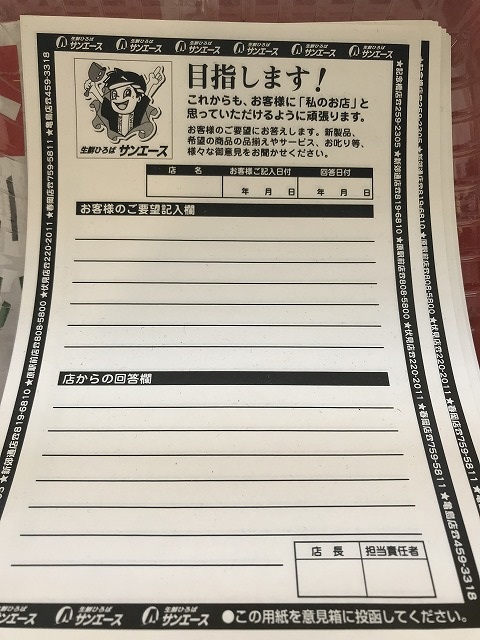 生鮮ひろば サンエース 生鮮ひろば サンエース 生鮮ひろば サンエース 生鮮ひろば サンエース 生鮮ひろば サンエース 生鮮ひろば サンエース
目指します!
これからも、お客様に「私のお店」と
思っていただけるように頑張ります。
お客様のご要望にお答えします。新製品、
希望の商品の品揃えやサービス、お叱り等、
様々な御意見をお聞かせください。
生鮮ひろば サンエース
店 名 お客様ご記入日付 回答日付
年 月 日 年 月 日
お客様のご要望記入欄
店からの回答欄
店 長 担当責任者
生鮮ひろば サンエース 生鮮ひろば サンエース 生鮮ひろば サンエース ●この用紙を意見箱に投函してください。
★新郊通店☎819-6810 ★原駅前店☎808-5800 ★伏見店☎220-2011 ★春岡店☎759-5811 ★亀島店☎459-3318
★記念橋店☎259-2305 ★新郊通店☎819-6810 ★原駅前店☎808-5800 ★伏見店☎220-2011 ★春岡店☎759-5811 ★亀島店☎459-3318